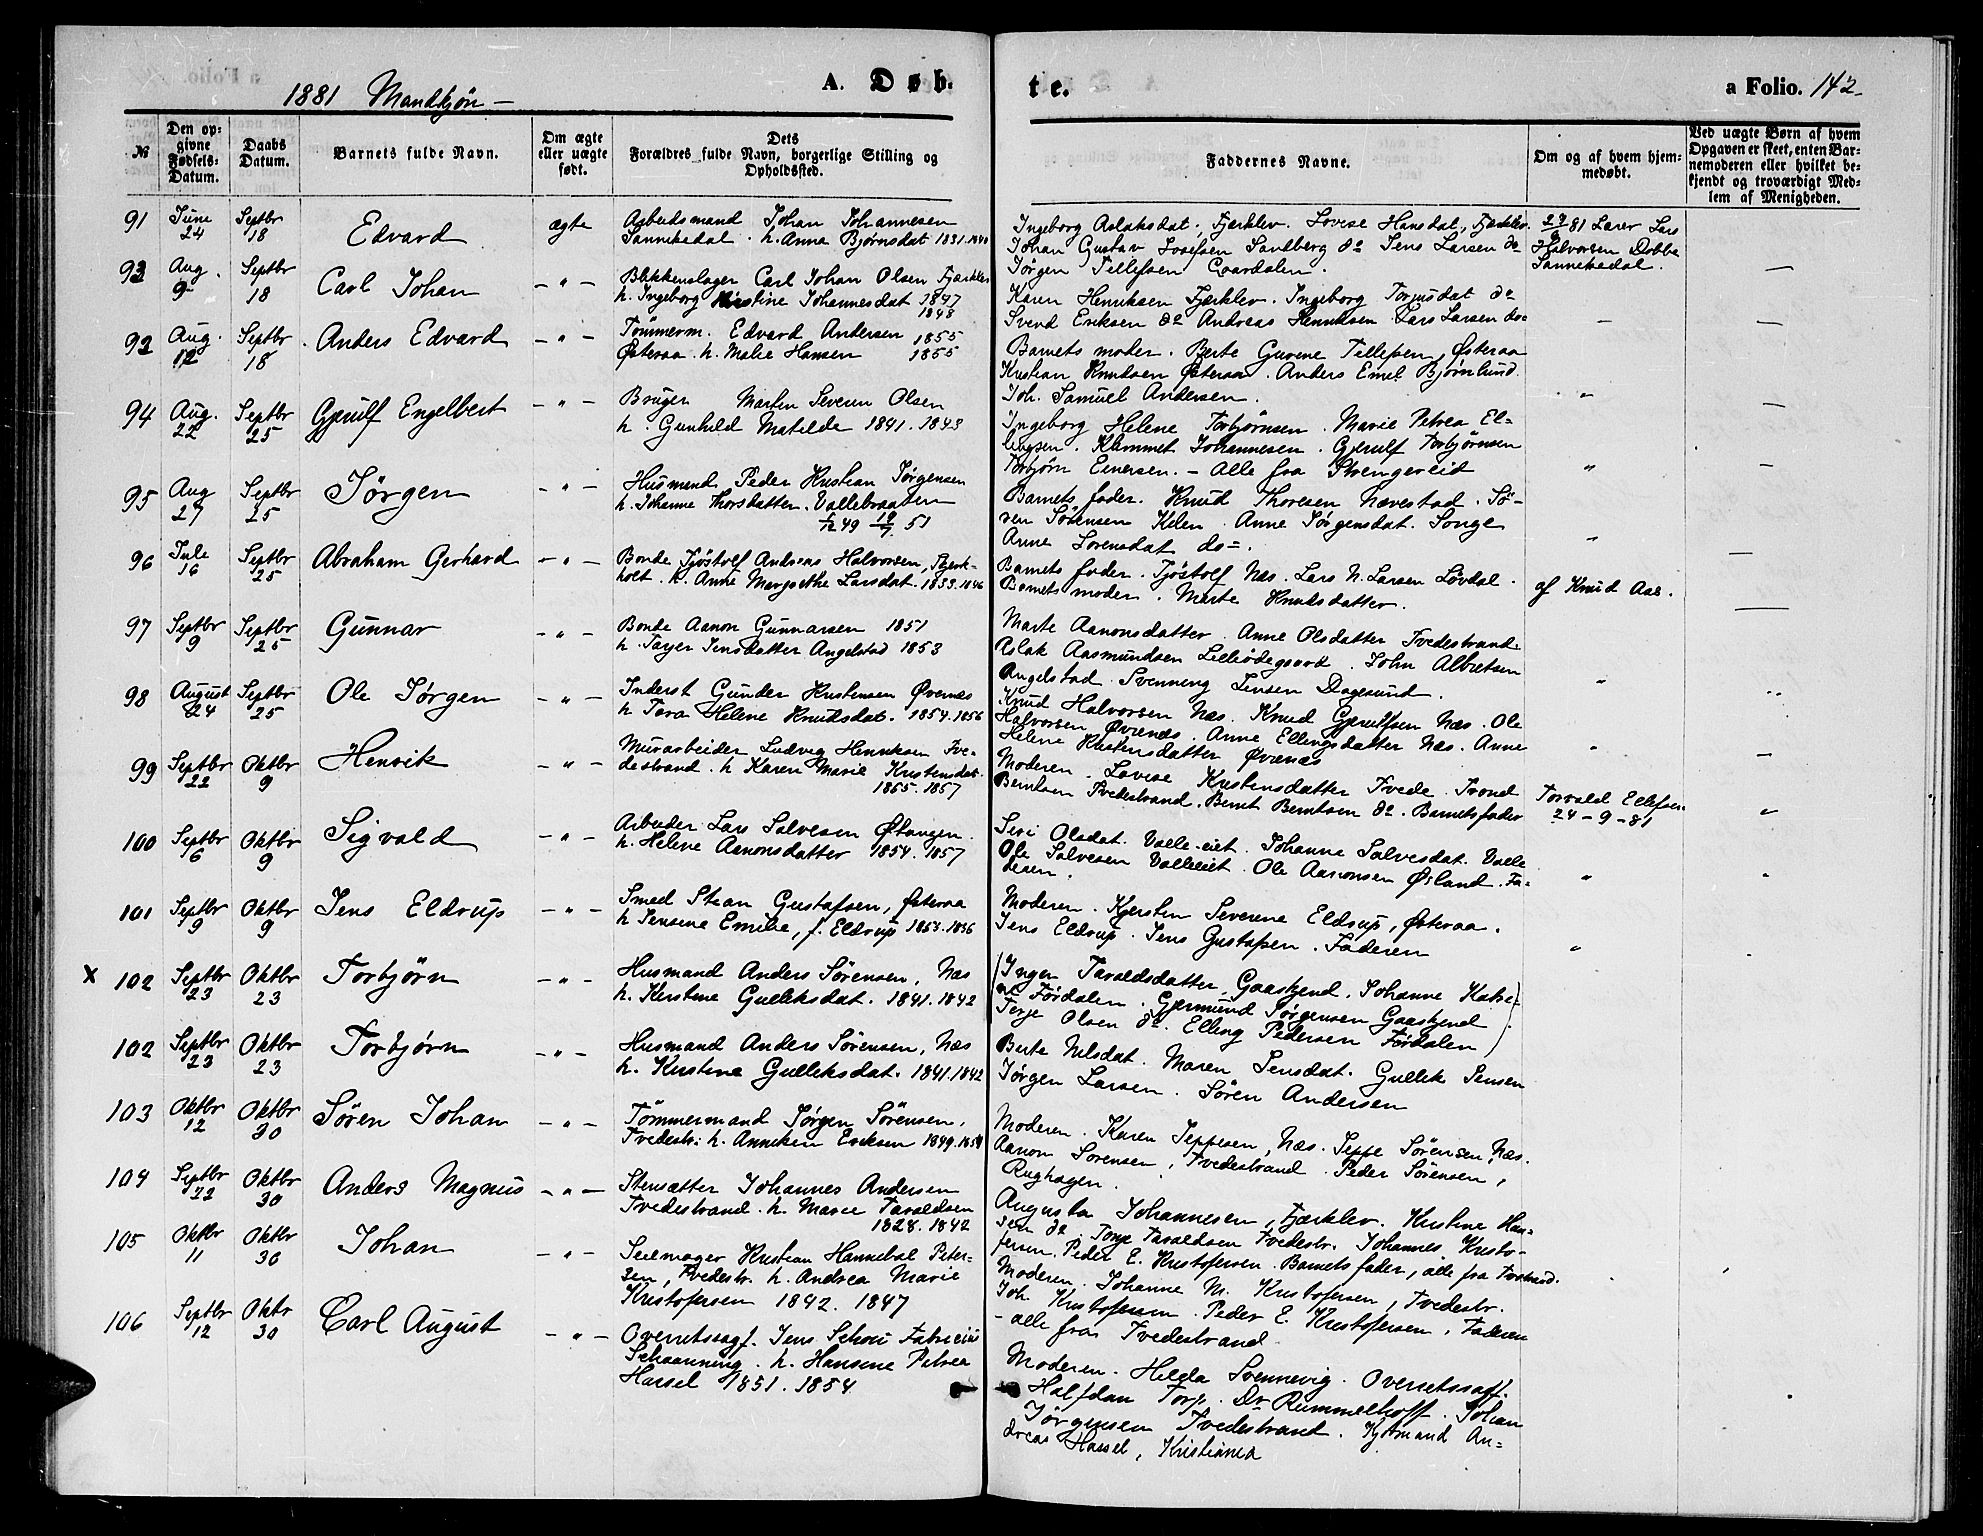 1881 Mandkjön –
A. Døb-
te.
a Folio. 142
№
Den opgivne Fødsels-Datum.
Daabs Datum.
Barnets fulde Navn.
Om ægte eller uægte født.
Dets Forældres fulde Navn, borgerlige Stilling og Opholdssted.
Faddernes Navne.
Om og af hvem hjemmedøbt.
Ved uægte Børn af hvem Opgaven er skeet, enten Barnemoderen eller hvilket bekjendt og troværdigt Medlem af Menigheden.
91 June 24 Septbr 18 Edvard ægte Arbeidsmand Johan Johannesen
Sannekedal. h. Anna Bjørnsdat 1831. 1840
Ingeborg Aslaksdat, Fjærklev. Lovise Hansdat, Fjærklev.
Johan Gustav Josefsen Sandberg do Jens Larsen do
Jörgen Tellefsen
81 Lærer Lars
Halvorsen Dobbe
Sannekedal.
93 Aug. 9 Septbr 18 Carl Johan – " – Blikkenslager Carl Johan Olsen Fjærklev
h. Ingeborg Kirstine Johannesdat 1847
1848
Karen Henriksen Fjærklev. Ingeborg Torjusdat do
Svend Eriksen do Andreas Henriksen Lars Larsen do
92 Aug. 12 Septbr 18 Anders Edvard – " – Tømmerm. Edvard Andersen 1855
Østeraa. h. Malie Hansen 1855
Barnets moder. Berte Gurine Tellefsen, Østeraa
Kristian Knudsen Østeraa. Anders Emel Bjørnlund.
Joh. Samuel Andersen.
94 Aug. 22 Septbr 25 Gjerulf Engelbert – " – Bruger Marten Severin Olsen
h. Gunhild Matilde 1841. 1843
Ingeborg Helene Torbjørnsen. Marie Petrea El-
lingsen. Klemmet Johannesen. Gjerulf Torbjörnsen
Torbjørn Einersen. – Alle fra Strengereid
95 Aug 27 Septbr 25 Jörgen – " – Husmand Peder Kristian Jørgensen
h. Johanne Thorsdatter. Vallebraaten
1/12 49 19/7 51
Barnets fader. Knud Thoresen Nævestad. Sö-
ren Sörensen Kilen. Anne Jörgensdat. Songe
Anne Sorensdat do.
96 Jule 16 Septbr 25 Abraham Gerhard – " – Bonde Tjöstolf Andreas Halvorsen, Bjerk-
holt. h. Anne Margrethe Larsdat. 1833. 1846
Barnets fader. Tjöstolf Næs. Lars N. Larsen Lövdal.
Barnets moder. Marte Knudsdatter.
af Knud Aas.
97 Septbr 9 Septbr 25 Gunnar – " – Bonde Aanon Gunnarsen 1851
h. Tarjer Jensdatter Angelstad 1853
Marte Aanonsdatter. Anne Olsdatter Tvedestrand.
Aslak Aasmundsen Lilleödegaard. John Albretsen
Angelstad. Svenning Jensen Dagesund.
98 August 24 Septbr 25 Ole Jörgen – " – Inderst Gunder Kristensen Øvernes
h Tara Helene Knudsdat. 1854. 1856
Knud Halvorsen Næs. Knud Gjerulfsen Næs. Ole
Halvorsen Øvrenes. Anne Ellingsdatter Næs. Anne
Helene Kristensdatter Øvrenes
99 Septbr 22 Oktbr 9 Henrik – " – Murarbeider Ludvig Henriksen Tve-
destrand. h Karen Marie Kristensdat.
1855. 1857
Moderen. Lovise Kristensdatter Tvede. Trond
Berntsen Tvedestrand. Bernt Berntsen do. Barnets fader
Torvald Ellefsen
24 – 9 – 81
100 Septbr 6 Oktbr 9 Sigvald – " – Arbeider Lars Salvesen Østangen.
h. Helene Aanonsdatter 1854. 1857
Siri Olsdat. Valle-eiet. Johanne Salvesdat. Valle
Ole Salvesen Valleeiet. Ole Aanonsen Øsland. Fa-
deren.
101 Septbr 9 Oktbr 9 Jens Eldrup – " – Smed Stean Gustafsen, Østeraa
h Jensene Emilie, f. Eldrup 1853. 1856
Moderen. Kjersten Severine Eldrup, Østeraa.
Jens Eldrup. Jens Gustafsen. Faderen
x 102 Septbr 23 Oktbr 23 Torbjørn – " – Husmand Anders Sørensen, Næs
h. Kirstine Gulleksdat. 1841. 1842
(Inger Taraldsdatter, Gaaskjend. Johanne Katri-
ne Førdalen. Gjermund Jørgensen Gaaskjend.
Terje Olsen do. Elling Pedersen Førdalen)
102 Septbr 23 Oktbr 23 Torbjørn – " – Husmand Anders Sørensen, Næs
h. Kirstine Gulleksdat. 1841. 1842
Berte Nilsdat. Maren Jensdat. Gullik Jensen
Jørgen Larsen. Søren Andersen
103 Oktbr 12 Oktbr 30 Søren Johan – " – Tømmermand Jørgen Sörensen,
Tvedestr. h. Anneken Eriksen 1849. 1854
Moderen. Karen Jeppesen, Næs. Jeppe Sörensen, Næs.
Aanon Sorensen, Tvedestrand. Peder Sørensen,
Rughagen.
104 Septbr 22 Oktbr 30 Anders Magnus – " – Stensætter Johannes Andersen
Tvedestrand. h. Marie Taraldsen
1828. 1842
Augusta Johannesen, Fjærklev. Kristine Han-
sen do. Terje Taraldsen Tvedestr. Johannes Kristo-
fersen. Peder E. Kristofersen. Barnets fader, alle fra Tvestrand.
105 Oktbr 11 Oktbr 30 Johan – " – Seilmager Kristian Hannebal Peter-
sen, Tvedestr. h. Andrea Marie
Kristofersen 1842. 1847
Moderen. Johanne M. Kristofersen, Tvedestr.
Joh. Kristofersen. Peder E. Kristofersen. Faderen
– alle fra Tvedestrand.
106 Septbr 12 Oktr 30 Carl August – " – Overretssagf. Jens Schou Fabricius
Schaanning. h. Hansine Petrea
Hassel 1851. 1854
Moderen. Helda Svennevig. Overretssagf.
Halfdan Torp. Dr Rummelhoff. Johan
Jörgensen Tvedestrand. Kjøbmand An-
dreas Hassel, Kristiania